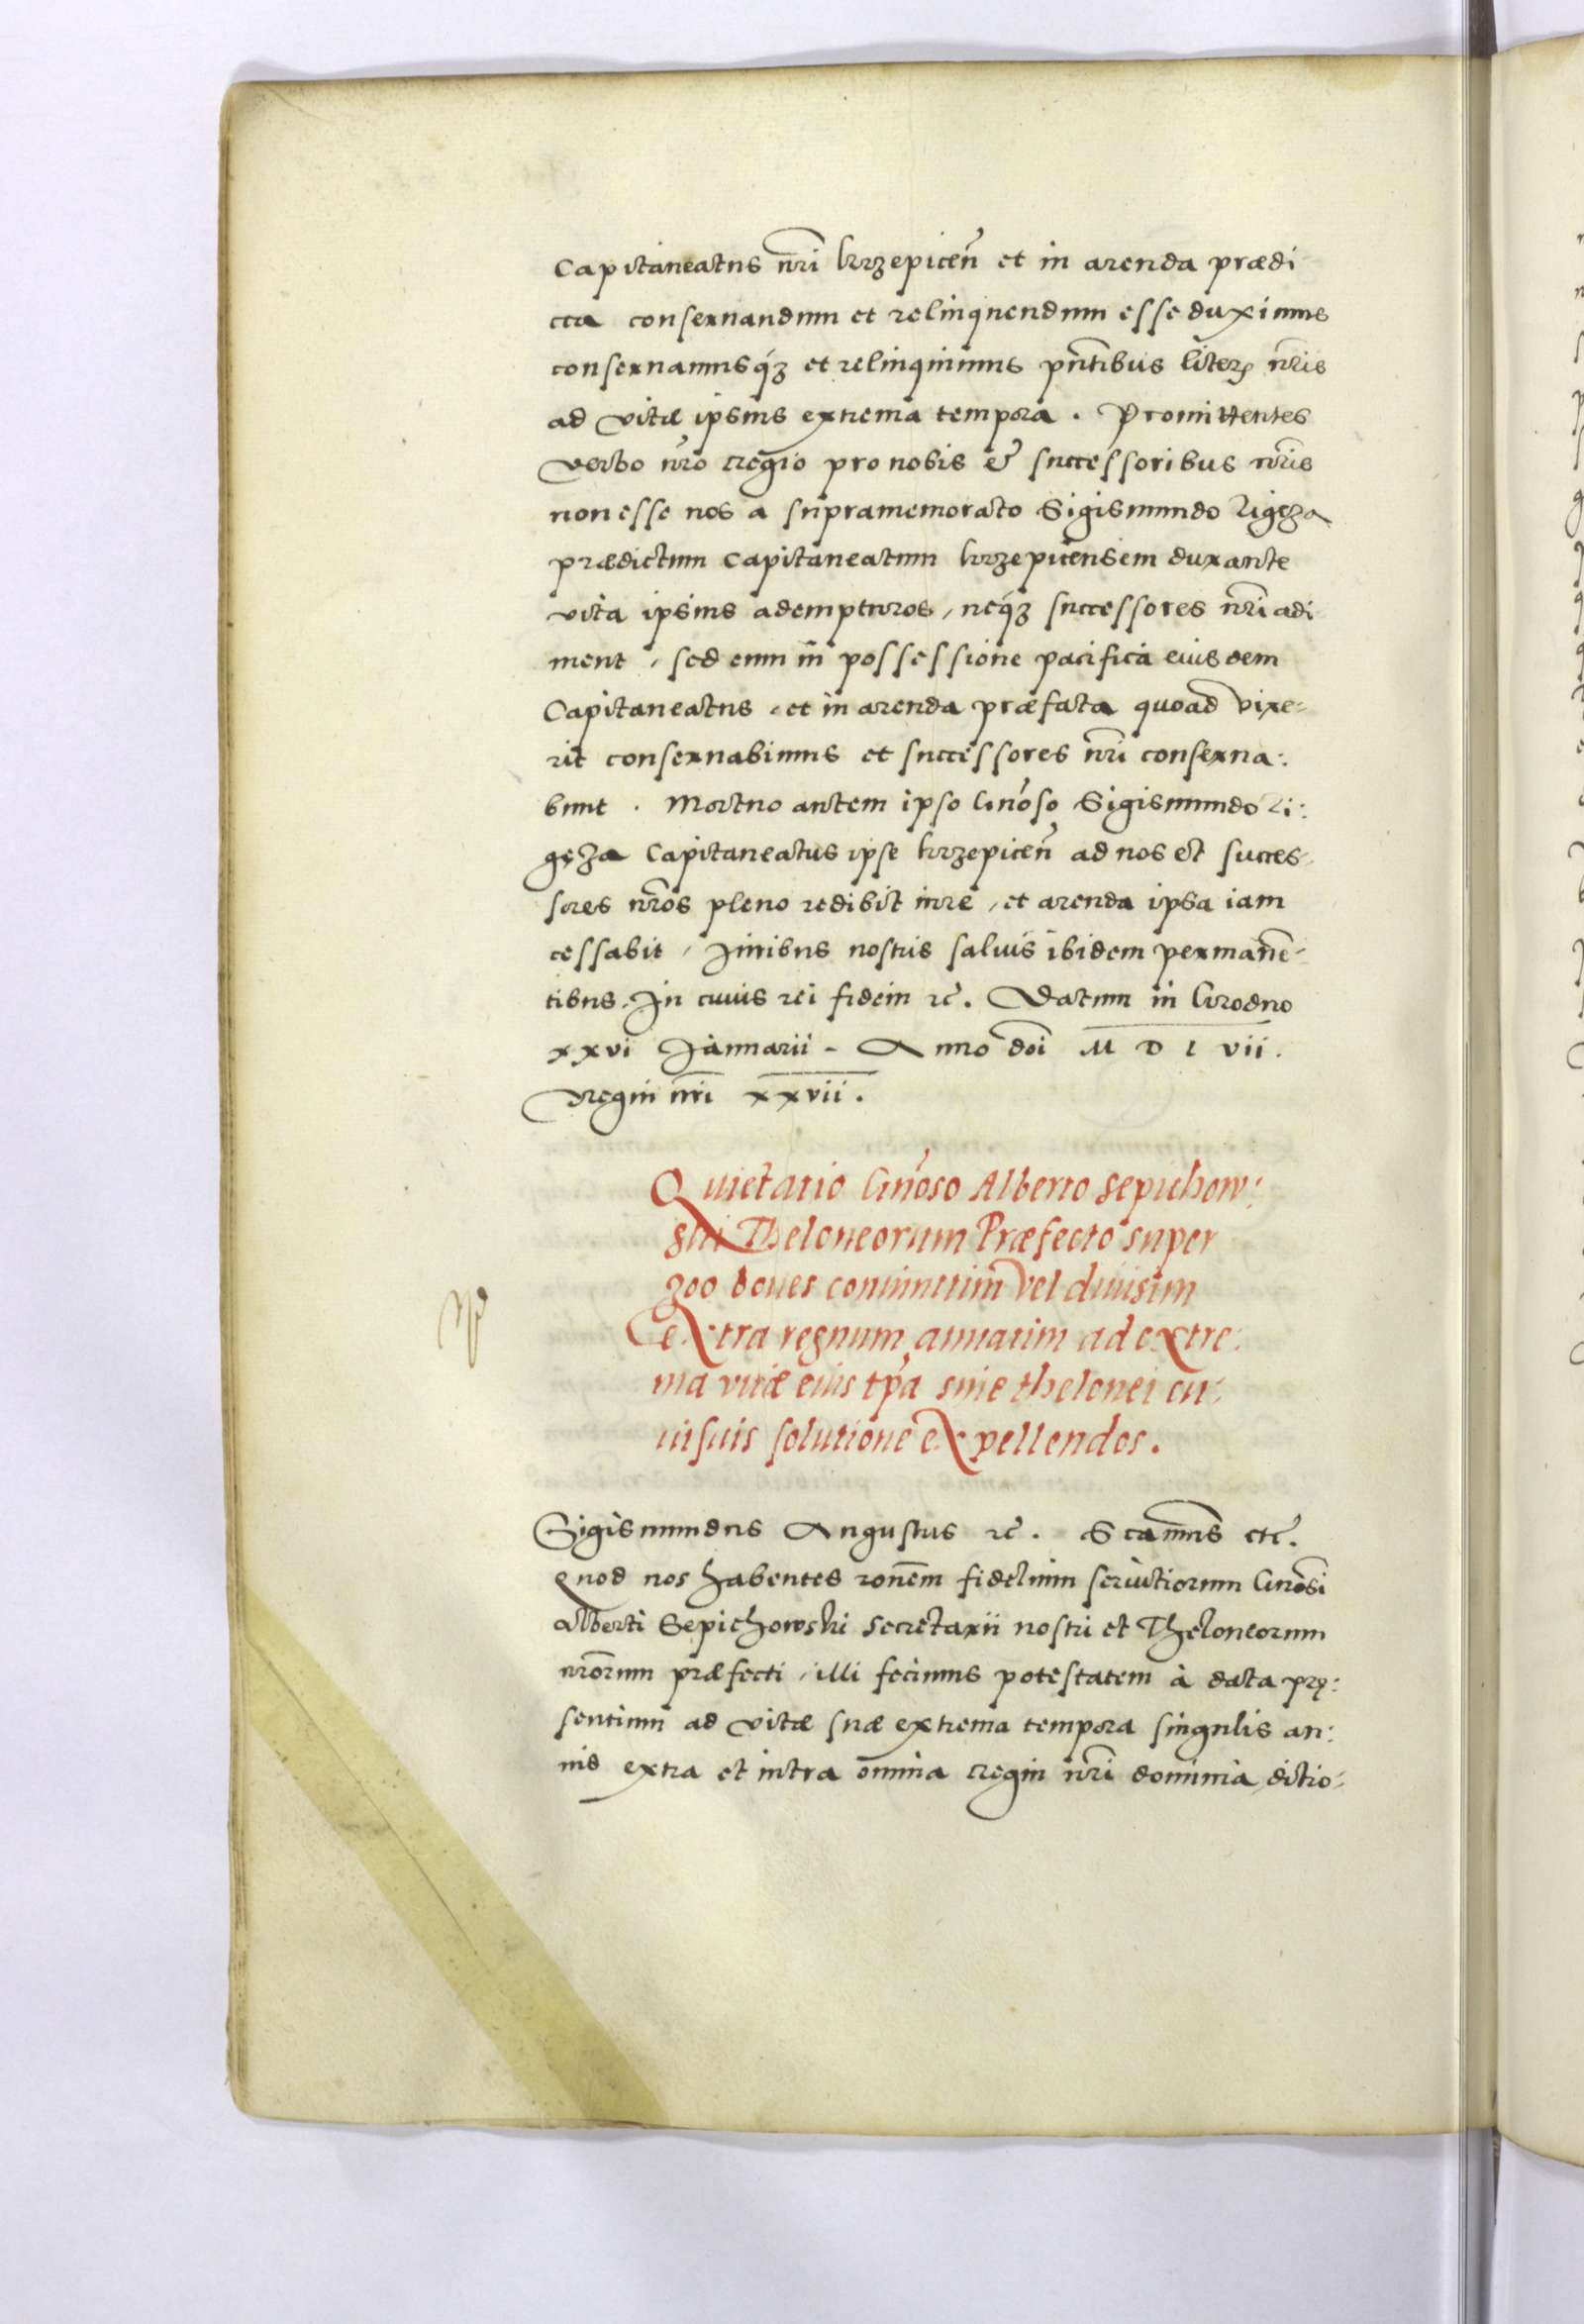 Capitaneatus nri krzepicen̄ et in arenda prædi
cta conseruandum et relinquendum esse duximus
conseruamusq́ʒ et relinquimus pn̄tibus literꝭ nris
ad vitæ ipsius extrema tempora. Promittentes
verbo nro regio pro nobis et successoribus nris
non esse nos a supramemorato Sigismundo Ligęza
prædictum Capitaneatum krzepicensem durante
vita ipsius adempturos, neq́ʒ successores nri adi
ment, sed eum in possessione pacifica eiusdem
Capitaneatus, et in arenda præfata quoad vixe-
rit conseruabimus et successores nri conserua:
bunt. Mortuo autem ipso Gnoso Sigismundo Li:
gęza Capitaneatus ipse krzepicen̄ ad nos et succes-
sores nros pleno redibit iure, et arenda ipsa iam
cessabit, Juribus nostris saluis ibidem permanē-
tibus. In cuius rei fidem ꝛc̄. Datum in Grodno
xxvi Januarii - Anno dni M D L vii.
Regni nri xxvii.
Quietatio Gnoso Alberto Sepichow:
ski Theloneorum Præfecto super
300 boues coniunctim vel diuisim
extra regnum, annatim ad extre:
ma vitæ eius tp̄a sine thelonei cu:
iusuis solutione expellendos.
Sigismundus Augustus ꝛc̄. Scamus etc̄.
Quod nos habentes ronem fidelium seruitiorum Gnosi
Alberti Sepichowski Secretarii nostri et Theloneorum
nrorum præfecti, illi fecimus potestatem à data prę:
sentium ad vitæ suæ extrema tempora singulis an:
nis extra et intra omnia regni nri dominia, ditio-